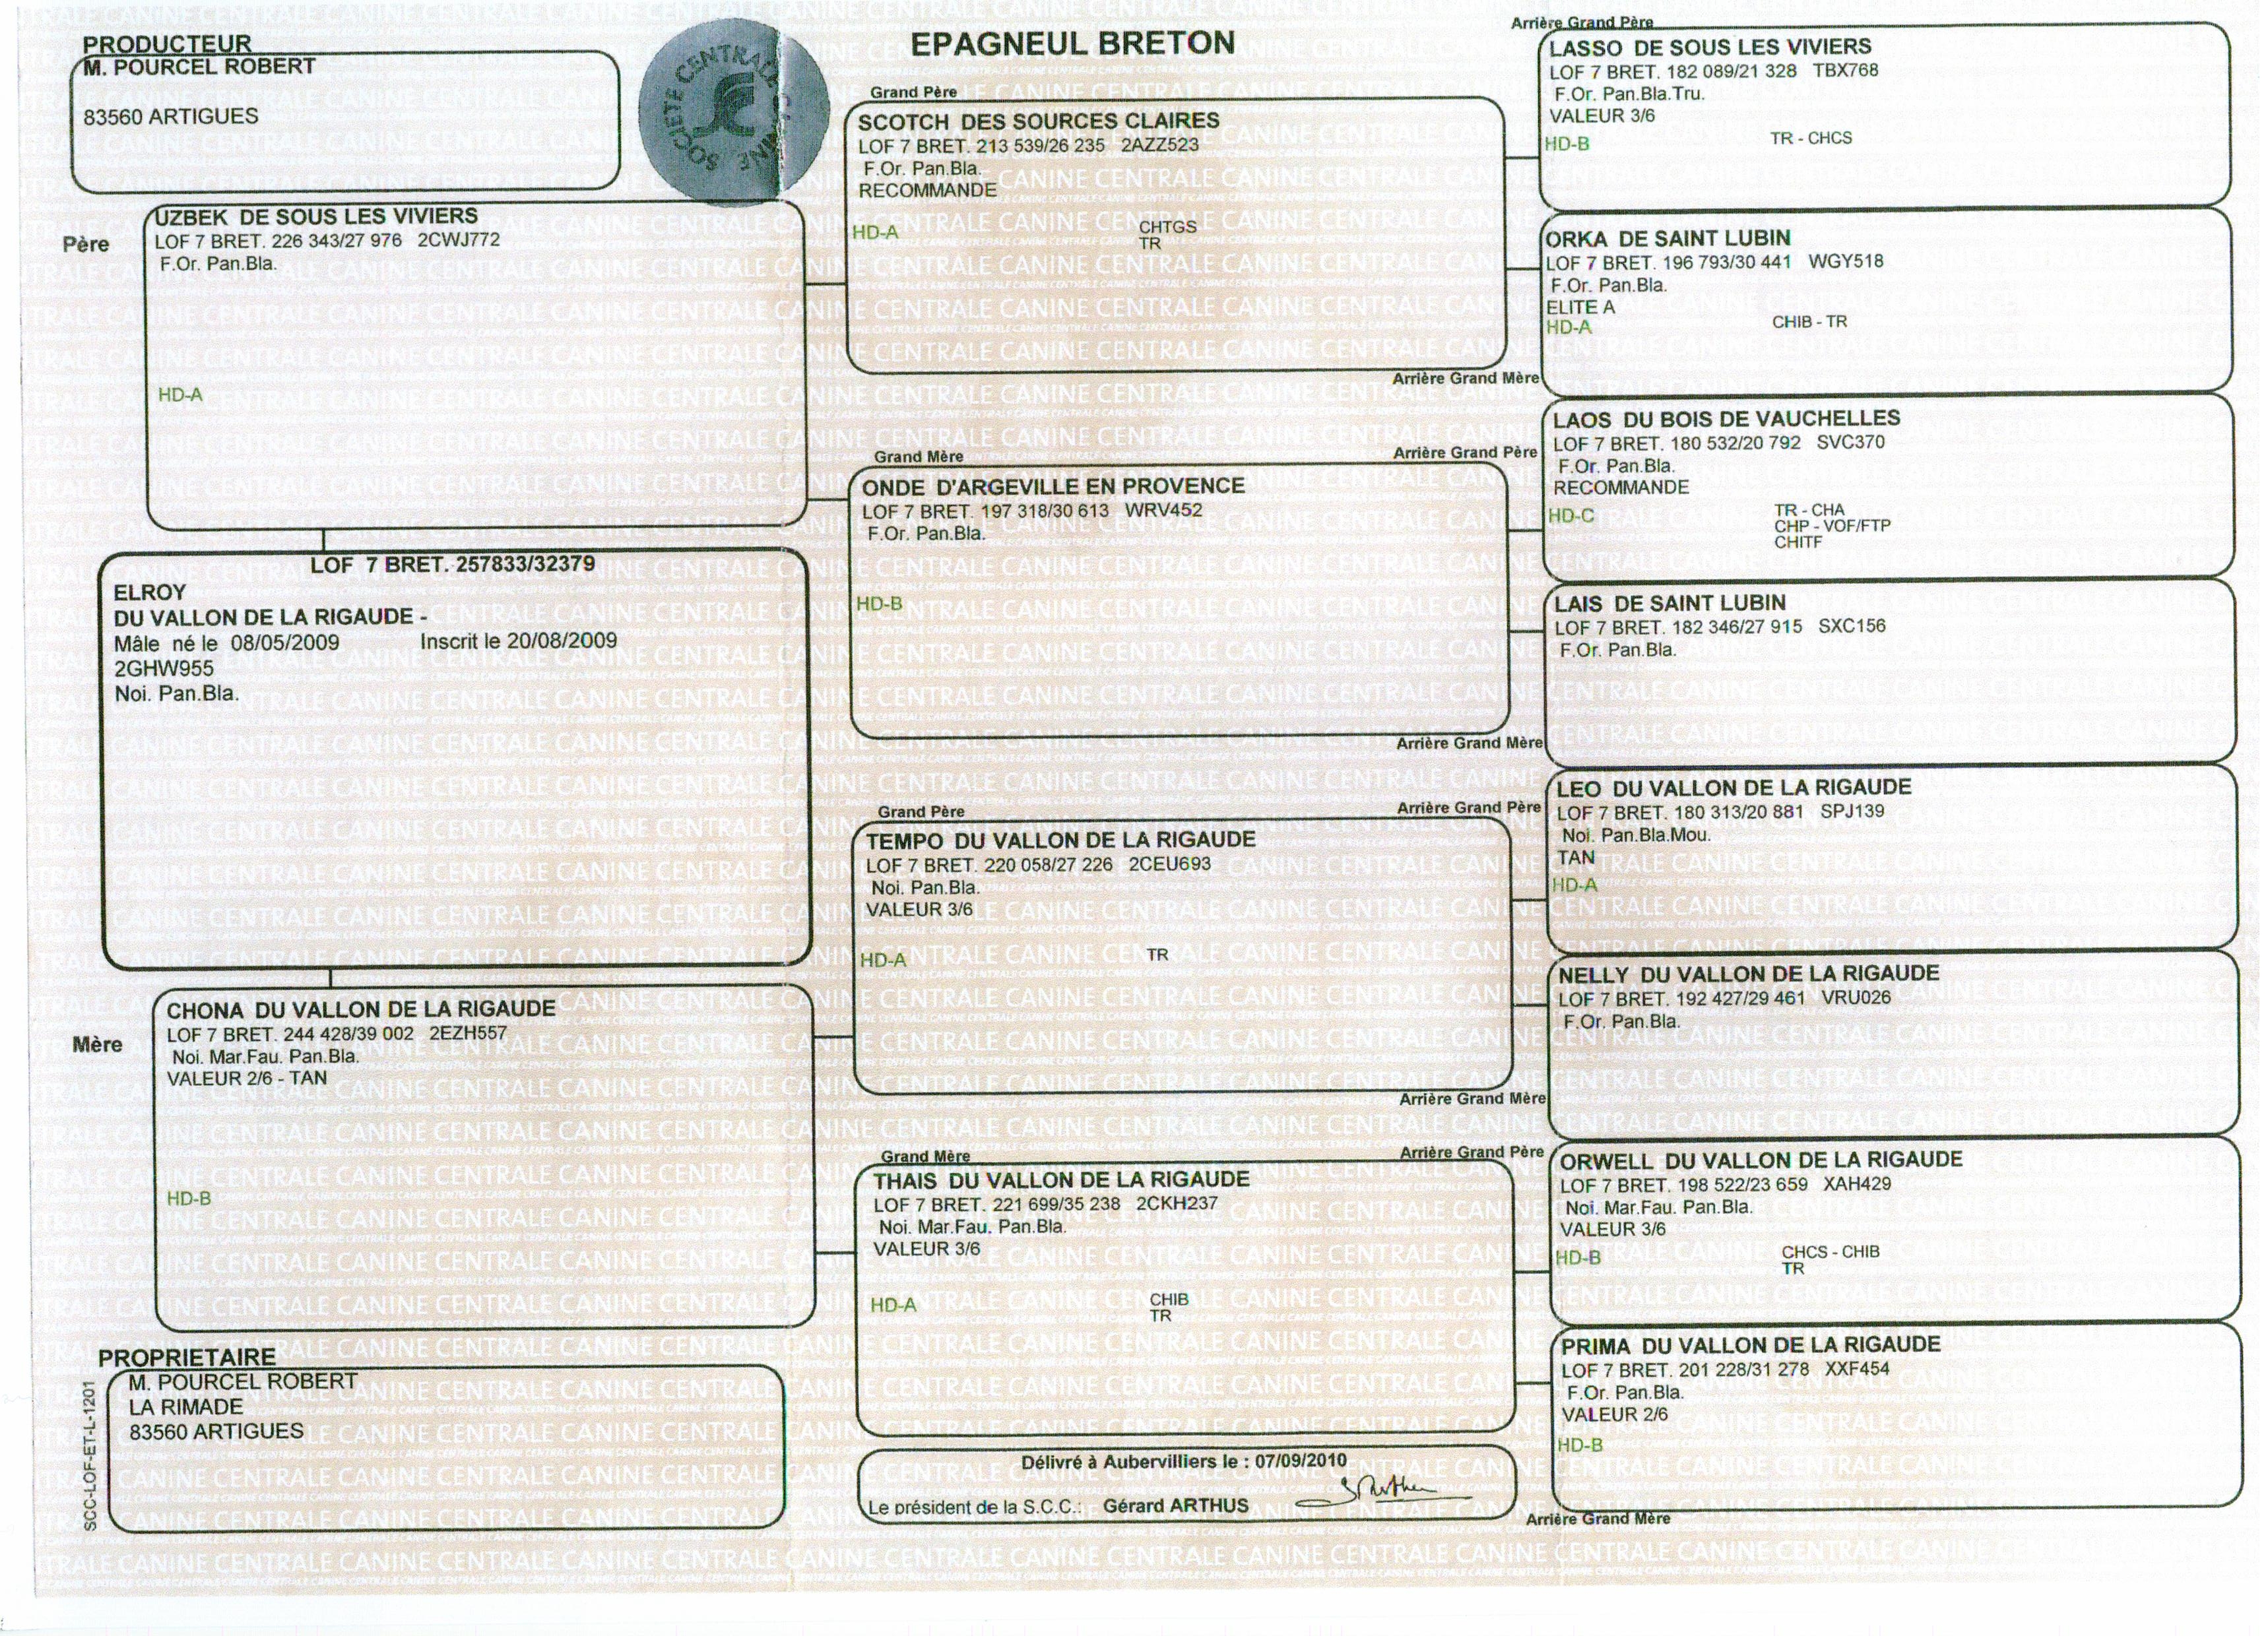 PRODUCTEUR
M. POURCEL ROBERT
83560 ARTIGUES
SOCIETE CENTRALE CANINE
EPAGNEUL BRETON
Père
UZBEK DE SOUS LES VIVIERS
LOF 7 BRET. 226 343/27 976 2CWJ772
F.Or. Pan.Bla.
HD-A
LOF 7 BRET. 257833/32379
ELROY
DU VALLON DE LA RIGAUDE -
Mâle né le 08/05/2009 Inscrit le 20/08/2009
2GHW955
Noi. Pan.Bla.
Mère
CHONA DU VALLON DE LA RIGAUDE
LOF 7 BRET. 244 428/39 002 2EZH557
Noi. Mar.Fau. Pan.Bla.
VALEUR 2/6 - TAN
HD-B
PROPRIETAIRE
M. POURCEL ROBERT
LA RIMADE
83560 ARTIGUES
SCC-LOF-ET-L-1201
Grand Père
SCOTCH DES SOURCES CLAIRES
LOF 7 BRET. 213 539/26 235 2AZZ523
F.Or. Pan.Bla.
RECOMMANDE
HD-A CHTGS
TR
Grand Mère
ONDE D'ARGEVILLE EN PROVENCE
LOF 7 BRET. 197 318/30 613 WRV452
F.Or. Pan.Bla.
HD-B
Grand Père
TEMPO DU VALLON DE LA RIGAUDE
LOF 7 BRET. 220 058/27 226 2CEU693
Noi. Pan.Bla.
VALEUR 3/6
HD-A TR
Grand Mère
THAIS DU VALLON DE LA RIGAUDE
LOF 7 BRET. 221 699/35 238 2CKH237
Noi. Mar.Fau. Pan.Bla.
VALEUR 3/6
HD-A CHIB
TR
Délivré à Aubervilliers le : 07/09/2010
Le président de la S.C.C.: Gérard ARTHUS
Arrière Grand Père
LASSO DE SOUS LES VIVIERS
LOF 7 BRET. 182 089/21 328 TBX768
F.Or. Pan.Bla.Tru.
VALEUR 3/6
HD-B TR - CHCS
ORKA DE SAINT LUBIN
LOF 7 BRET. 196 793/30 441 WGY518
F.Or. Pan.Bla.
ELITE A
HD-A CHIB - TR
Arrière Grand Mère
Arrière Grand Père
LAOS DU BOIS DE VAUCHELLES
LOF 7 BRET. 180 532/20 792 SVC370
F.Or. Pan.Bla.
RECOMMANDE
HD-C TR - CHA
CHP - VOF/FTP
CHITF
LAIS DE SAINT LUBIN
LOF 7 BRET. 182 346/27 915 SXC156
F.Or. Pan.Bla.
Arrière Grand Mère
Arrière Grand Père
LEO DU VALLON DE LA RIGAUDE
LOF 7 BRET. 180 313/20 881 SPJ139
Noi. Pan.Bla.Mou.
TAN
HD-A
NELLY DU VALLON DE LA RIGAUDE
LOF 7 BRET. 192 427/29 461 VRU026
F.Or. Pan.Bla.
Arrière Grand Mère
Arrière Grand Père
ORWELL DU VALLON DE LA RIGAUDE
LOF 7 BRET. 198 522/23 659 XAH429
Noi. Mar.Fau. Pan.Bla.
VALEUR 3/6
HD-B CHCS - CHIB
TR
PRIMA DU VALLON DE LA RIGAUDE
LOF 7 BRET. 201 228/31 278 XXF454
F.Or. Pan.Bla.
VALEUR 2/6
HD-B
Arrière Grand Mère